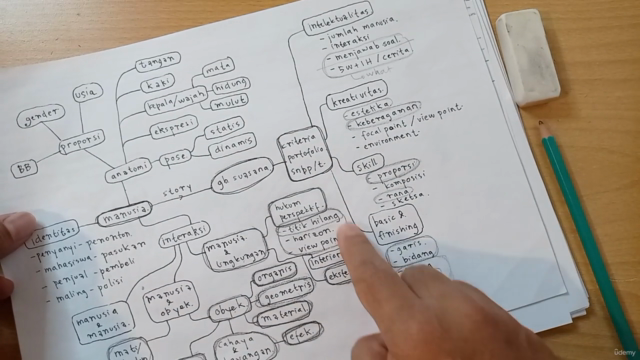 intelektualitas
- jumlah manusia.
- interaksi
- menjawab soal
- 5W+1H / cerita
tangan
kaki
mata
hidung
mulut
kepala/wajah
usia
gender
proporsi
BB
ekspresi
statis
dinamis
pose
anatomi
kreativitas
- estetika
- keberagaman
- focal point / view point
- environment.
kriteria
portofolio
snbp/t.
skill
- proporsi
- komposisi
- ruang
- sketsa.
story
gb suasana
manusia
identitas
- penyanyi - penonton
- mahasiswa - pasukan
- penjual - pembeli
- maling - polisi
interaksi
hukum
perspektif.
- titik hilang
- horizon.
view point
basic &
finishing
- garis.
- bidang
manusia
lingkungan
interior
ekste
organis
geometris
material
obyek
efek
manusia
&
obyek.
manusia
&
manusia.
cahaya
&
udemy